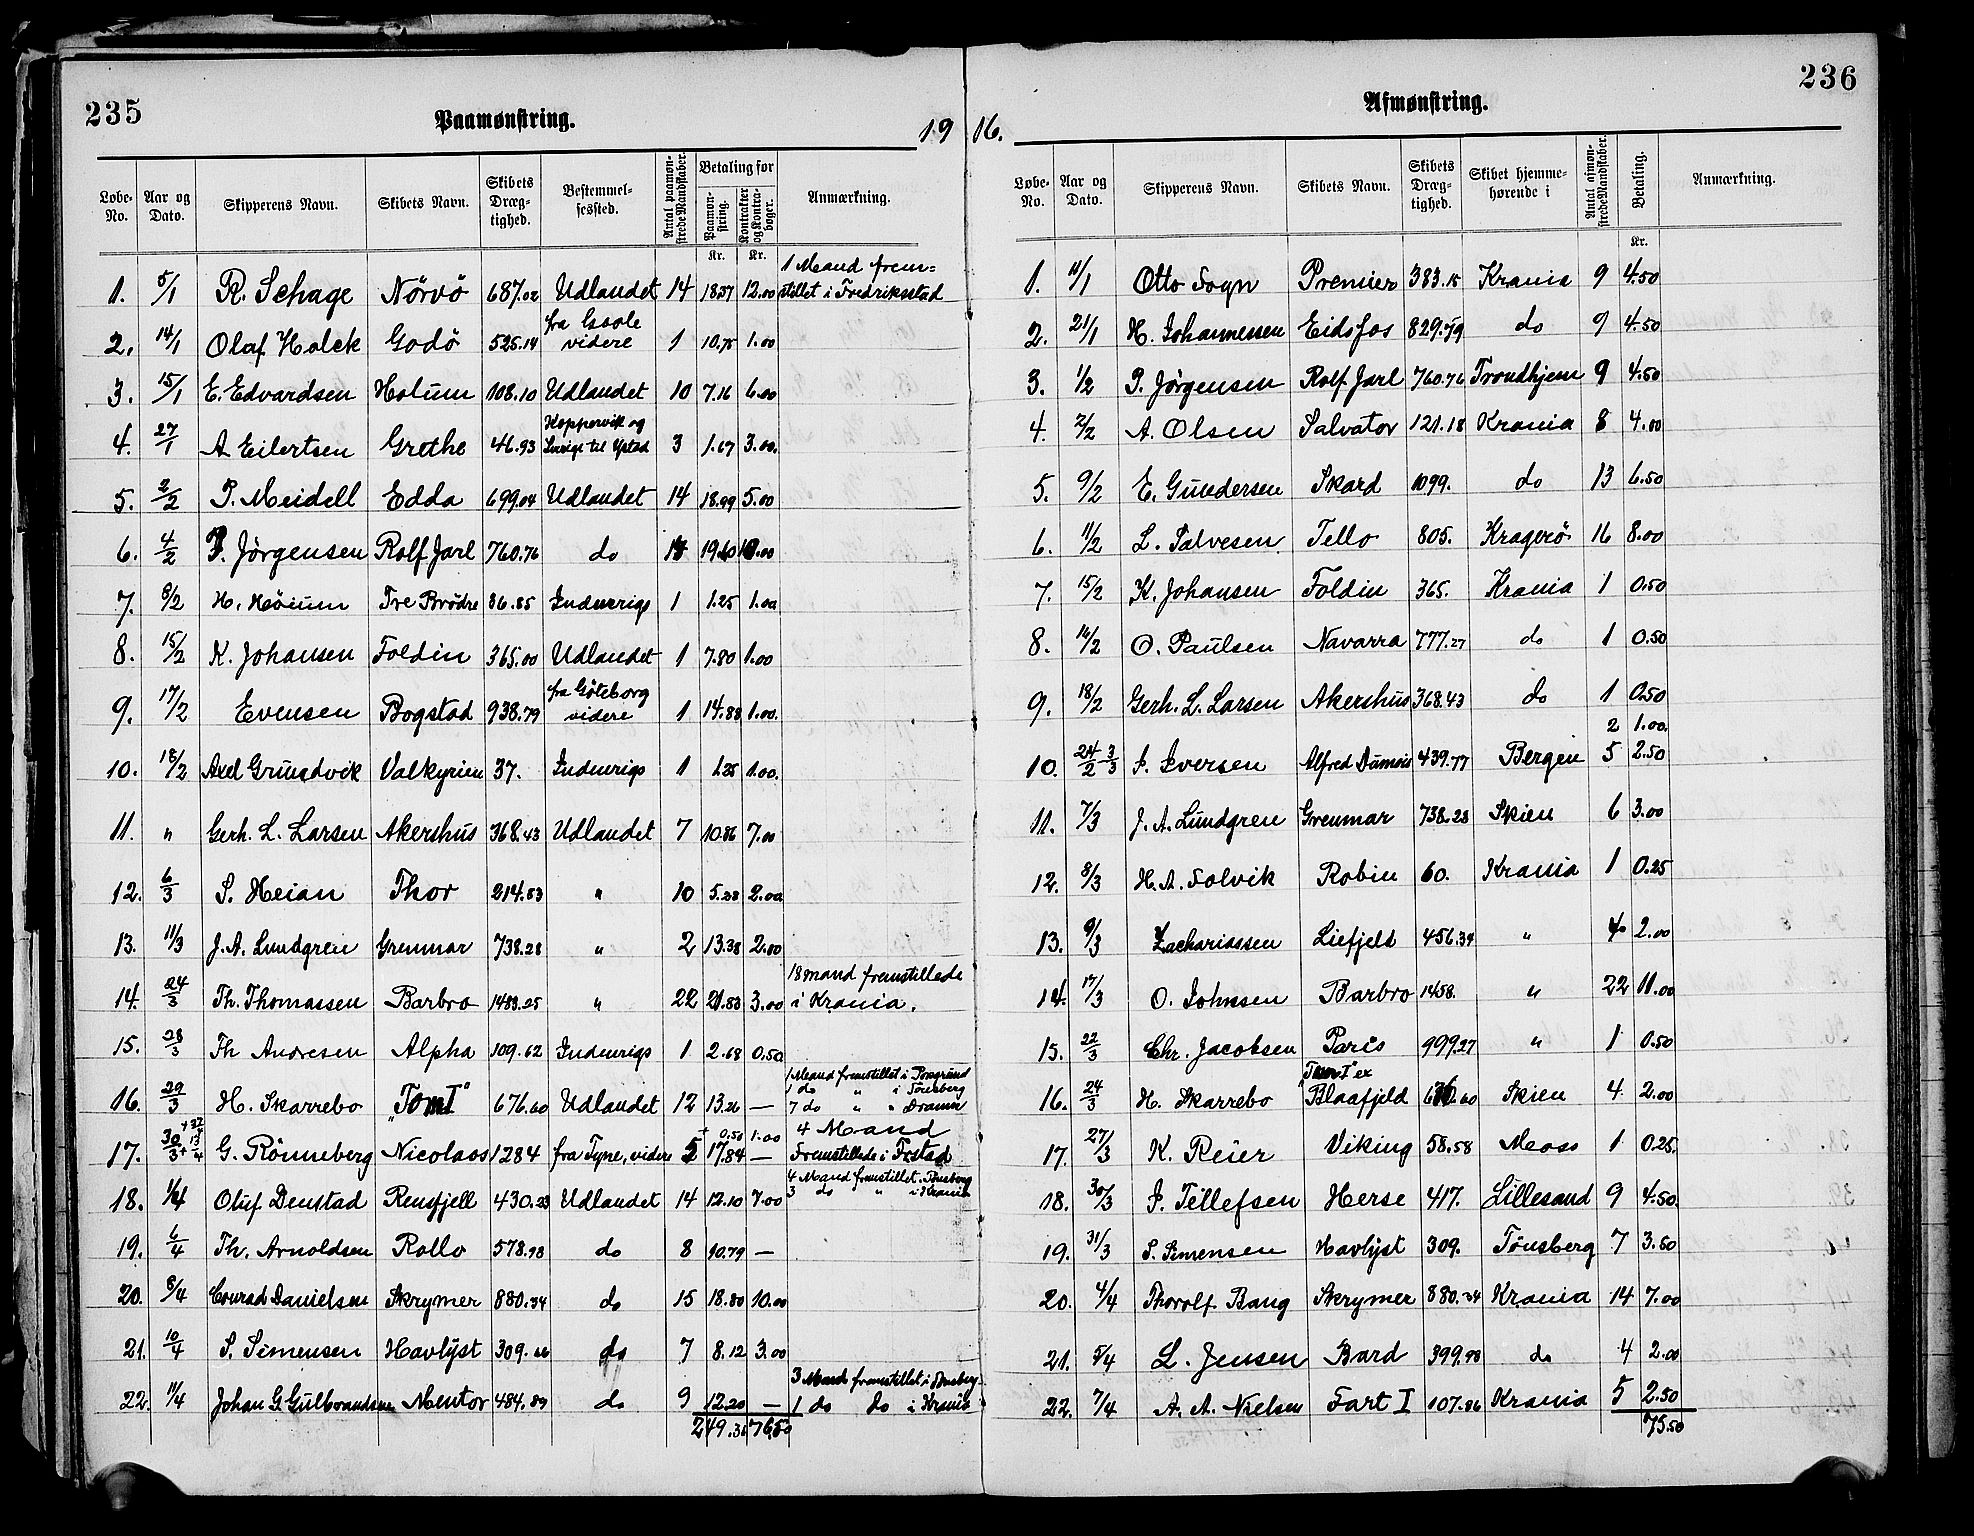 235
Paamønstring.
19
Løbe-No. Aar og Dato. Skipperens Navn. Skibets Navn. Skibets Dræg-tighed. Bestemmel-sessted. Antal paamøn-strede Mandskaber. Betaling før Paamøn-string. Kr. Kontrakter og Kontra-bøger. Kr. Anmærkning.
1. 5/1 R. Schage Nörvö 687.02 Udlandet 14 18.37 12.00 1 Mand frem= stillet i Fredriksstad
2. 14/1 Olaf Holck Godö 525.14 fra Goole videre 1 10.75 1.00
3. 15/1 E. Edvardsen Holum 108.10 Udlandet 10 7.16 6.00
4. 27/1 A Eilertsen Grethe 46.93 Koppervik og Sverige til Ystad 3 1.67 3.00.
5. 2/2 P. Meidell Edda 699.04 Udlandet 14 18.99 5.00
6. 4/2 P. Jörgensen Rolf Jarl 760.76 do 19.60
7. 8/2 H. Höium Tre Brödre 36.85 Indenrigs 1 1.25 1.00
8. 15/2 K. Johansen Foldin 365.00 Udlandet 1 7.80 1.00
9. 17/2 Evensen Bogstad 938.79 fra Göteborg videre 1 14.88 1.00.
10. 18/2 Axel Grundvik Valkyrien 37. Indenrigs 1 1.25 1.00.
11. " Gerh. L. Larsen Akershus 368.43 Udlandet 7 10.86 7.00
12. 6/3 S. Heian Thor 214.83 " 10 5.28 2.00
13. 11/3 J. A. Lundgren Grenmar 738.28 " 2 13.38 2.00
14. 24/3 Th. Thomassen Barbro 1483.25 " 22 21.83 3.00 18 mand fremstillede i Krania.
15. 28/3 Th Andresen Alpha 109.62 Indenrigs 1 2.68 0.50
16. 29/3 H. Skarrebo "Tom I" 676.60 Udlandet 12 13.26 — 1 Mand fremstillet i Porsgrund 1 do " i Tönsberg 7 do " " Dramn
17. 30/3 + 13/4 G. Rönneberg Nicolaos 1284 fra Tyne, videre 5 + 0.50 17.84 1.00 — 4 Mand Fremstillede i Frstad
18. 1/4 Oluf Denstad Rensfjell 430.23 Udlandet 14 12.10 7.00 4 Mand fremstillet i Tönsberg 3 do " i Krania
19. 6/4 Th. Arnoldsen Rollo 578.98 do 8 10.79 —
20. 8/4 Conrad Danielsen Skrymer 880.34 do 15 18.80 10.00
21. 10/4 S. Simensen Havlyst 309.66 do 7 8.12 3.00
22. 11/4 Johan G. Gulbrandsen Mentor 484.89 do 9 12.20 — 3 Mand fremstillet i Tönsberg 1 do do i Krania
249.36 76.50
236
Afmønstring.
16.
Løbe-No. Aar og Dato. Skipperens Navn. Skibets Navn. Skibets Dræg-tighed. Skibet hjemme-hørende i Antal afmøn-strede Mandskaber. Betaling. Kr. Anmærkning.
1. 11/1 Otto Sogn Premier 383.15 Krania 9 4.50
2. 21/1 H. Johannessen Eidsfos 829.59 do 9 4.50
3. 1/2 P. Jörgensen Rolf Jarl 760.76 Trondhjem 9 4.50
4. 2/2 A. Olsen Salvator 121.18 Krania 8 4.00
5. 9/2 E. Gundersen Skard 1099. do 13 6.50
6. 11/2 L. Salvesen Tello 805. Kragerö 16 8.00
7. 15/2 K. Johansen Foldin 365. Krania 1 0.50
8. 16/2 O. Paulsen Navarra 777.27 do 1 0.50
9. 18/2 Gerh. L. Larsen Akershus 368.43 do 1 0.50
2 1.00.
10. 24/2 3/3 J. Iversen Alfred Dumois 439.77 Bergen 5 2.50
11. 7/3 J. A. Lundgren Grenmar 738.28 Skien 6 3.00
12. 8/3 H. A. Folvik Robin 60. Krania 1 0.25
13. 9/3 Zachariassen Liefjeld 456.34 " 4 2.00
14. 17/3 O. Johnsen Barbro 1458. " 22 11.00
15. 22/3 Chr. Jacobsen Paris 999.27 " 1 0.50
16. 24/3 H. Skarrebo "Tom I" ex Blaafjeld 676.60 Skien 4 2.00
17. 27/3 K. Reier Viking 58.58 Moss 1 0.25.
18. 30/3 J. Tellefsen Herse 417. Lillesand 9 4.50.
19. 31/3 S. Simensen Havlyst 309. Tönsberg 7 3.50
20. 4/4 Thorolf Bang Skrymer 880.34 Krania 14 7.00
21. 5/4 L. Jensen Bard 399.98 do 4 2.00
22. 7/4 A. A. Nielsen Fart I 107.86 Krania 5 2.50
75.50